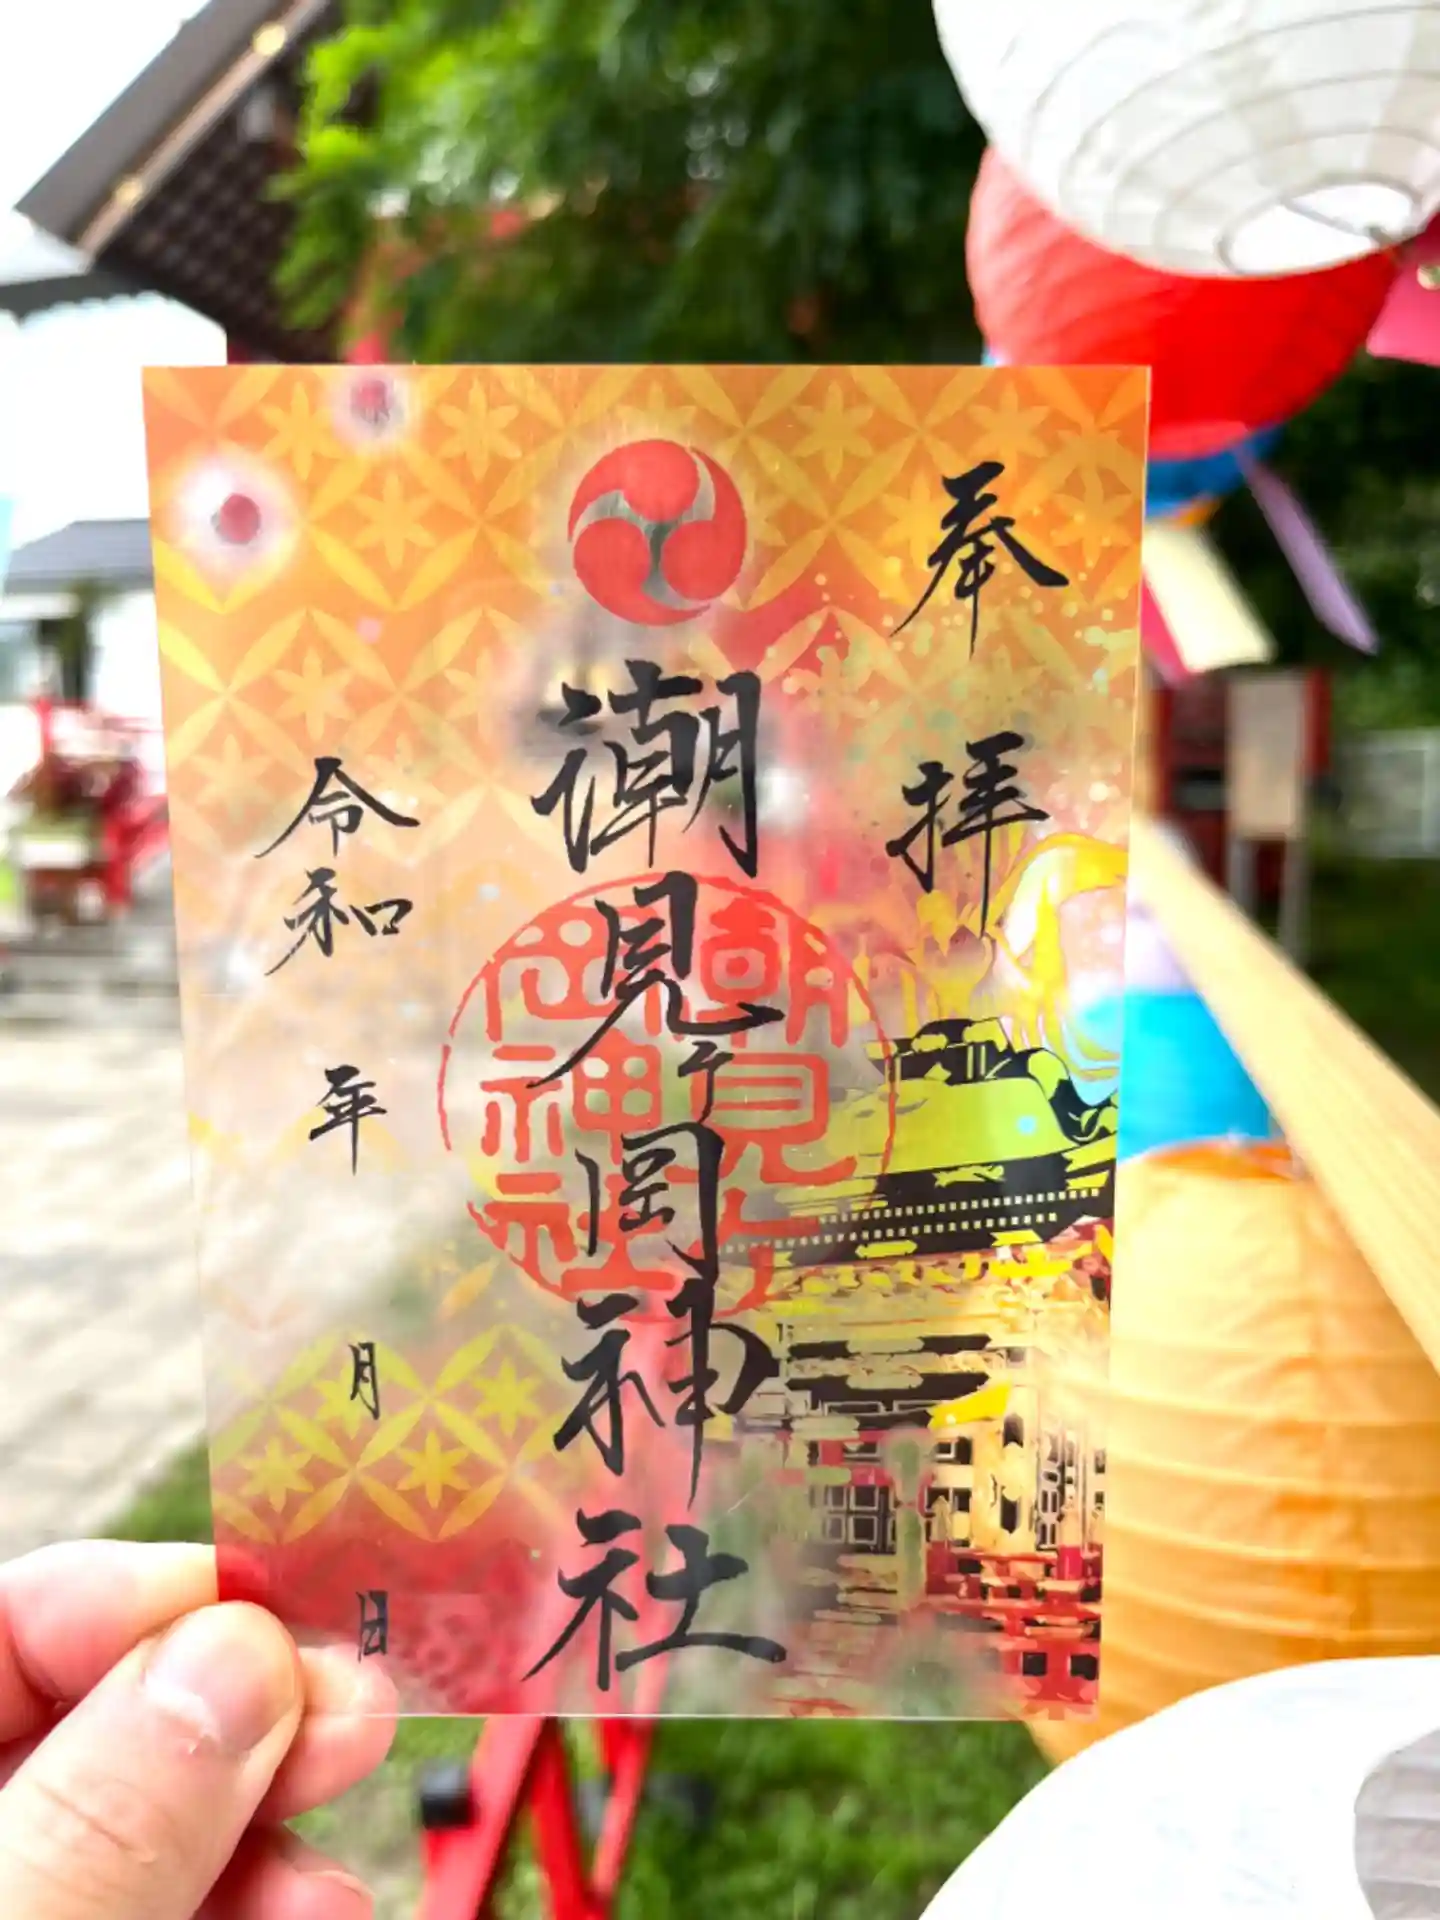 奉拝
潮見ヶ岡神社
潮見ヶ
岡神社
令和 年 月 日